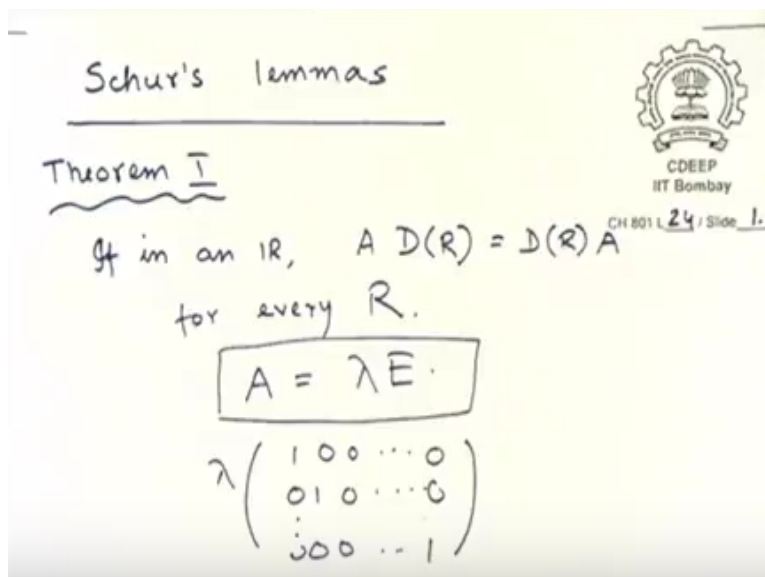 Schur's lemmas
CDEEP
IIT Bombay
CH 801 L 24 / Slide 1.
Theorem I
If in an IR, A D(R) = D(R) A
for every R.
A = λ E.
λ ( 1 0 0 ... 0
0 1 0 ... 0
:
0 0 0 .. 1 )